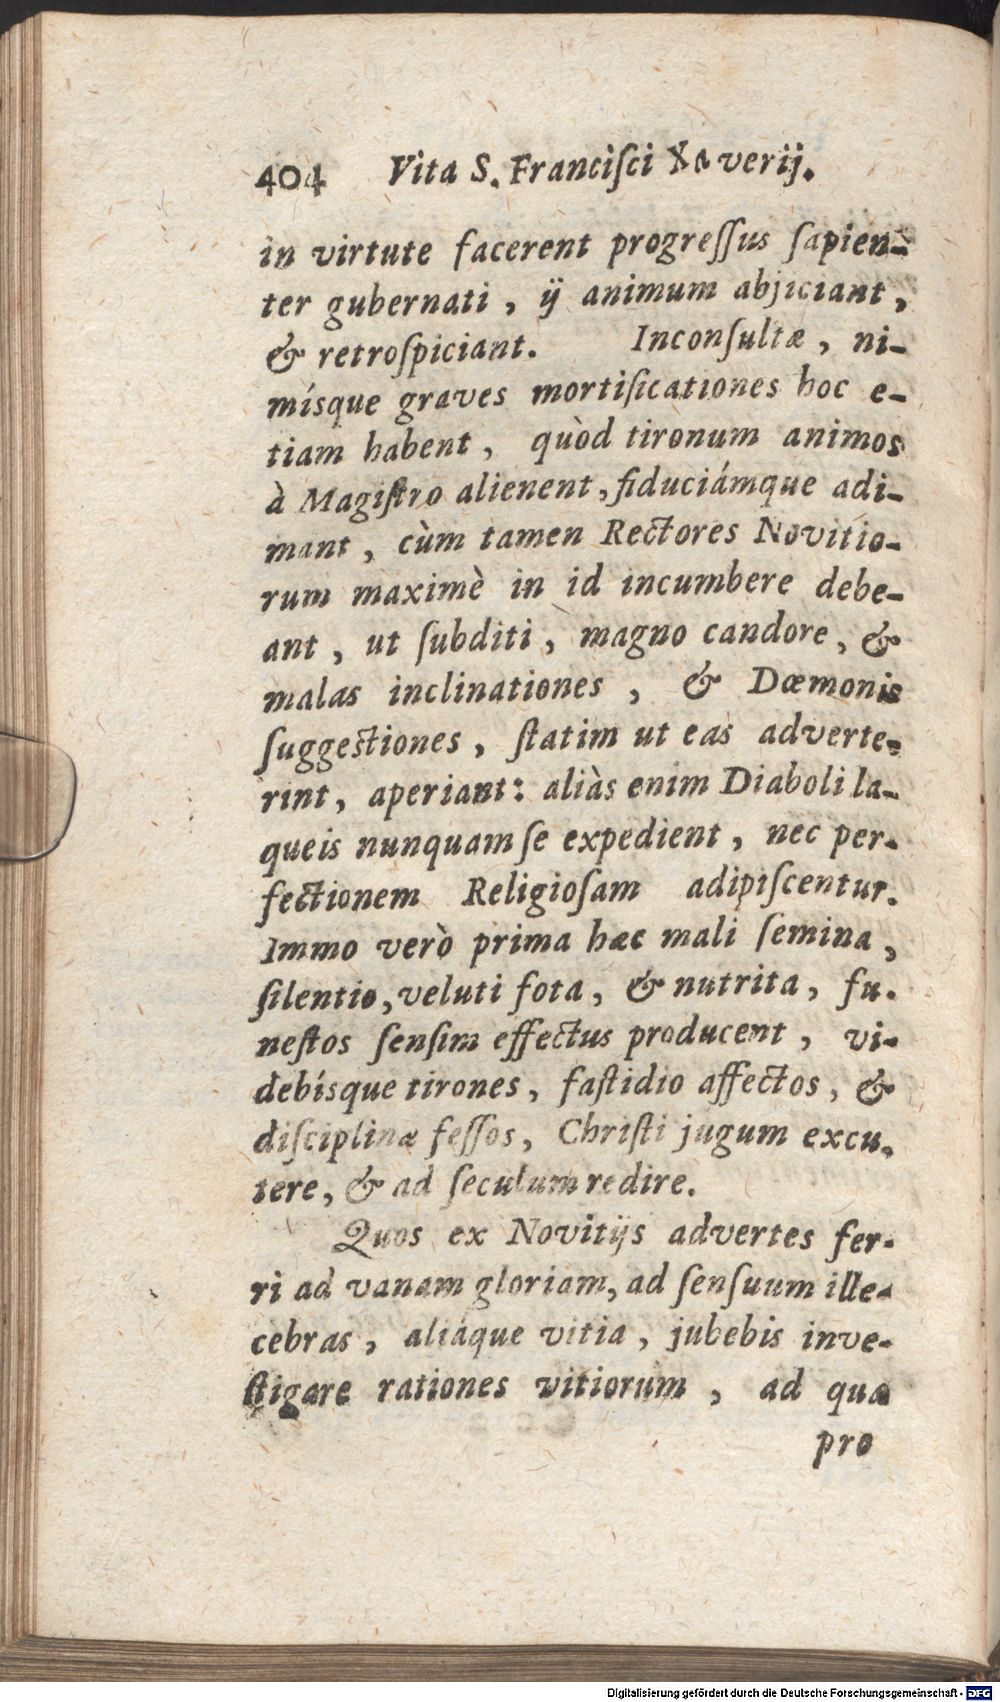 404 Vita S. Franciſci Xaverij.
in virtute facerent progreſſus ſapien-
ter gubernati, ij animum abjiciant,
& retroſpiciant. Inconſultæ, ni-
mísque graves mortificationes hoc e-
tiam habent, quòd tironum animos
à Magiſtro alienent, fiduciámque adi-
mant, cùm tamen Rectores Novitio-
rum maximè in id incumbere debe-
ant, ut ſubditi, magno candore, &
malas inclinationes, & Dæmonis
ſuggeſtiones, ſtatim ut eas adverte-
rint, aperiant: aliàs enim Diaboli la-
queis nunquam ſe expedient, nec per-
fectionem Religioſam adipiſcentur.
Immo verò prima hæc mali ſemina,
ſilentio, veluti fota, & nutrita, fu-
neſtos ſenſim effectus producent, vi-
debísque tirones, faſtidio affectos, &
diſciplinæ feſſos, Chriſti jugum excu-
tere, & ad ſeculum redire.
Quos ex Novitijs advertes fer-
ri ad vanam gloriam, ad ſenſuum ille-
cebras, aliáque vitia, jubebis inve-
ſtigare rationes vitiorum, ad quæ
pro
Digitalisierung gefördert durch die Deutsche Forschungsgemeinschaft - DFG